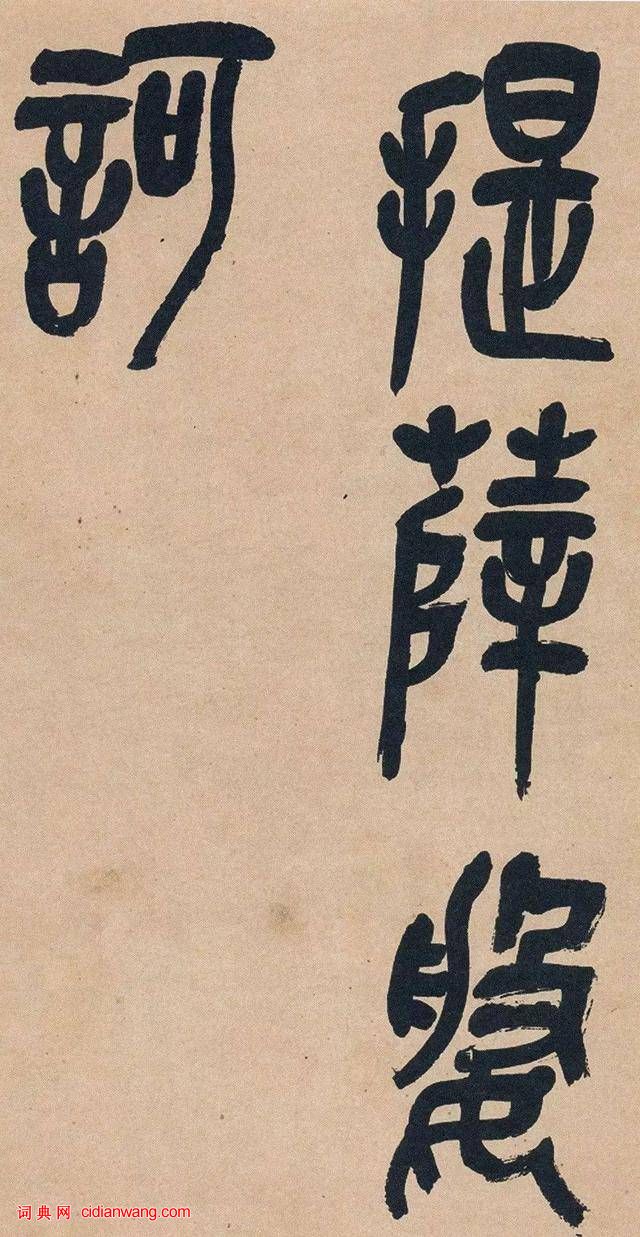 提薩媻
訶
词典网 cidianwang.com